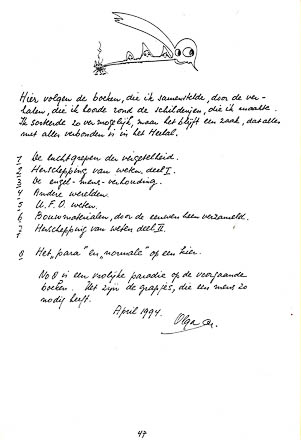 Hier volgen de boeken, die ik samenstelde, door de ver-
halen, die ik hoorde rond de schilderijen, die ik maakte.
Ik sorteerde zo ver mogelijk, maar het blijft een zaak, dat alles
met alles verbonden is in het Heelal.
1 De luchtgrepen der veiligheid.
2 Herschepping van weten deel I.
3 De engel-mens-verhouding.
4 Andere werelden.
5 U.F.O. weten.
6 Bouwmaterialen, door de eeuwen heen verzameld.
7 Herschepping van weten deel II.
8 Het "para" en "normale" op een kier.
No 8 is een vrolijke parodie op de voorgaande
boeken. Het zijn de grapjes, die een mens zo
nodig heeft.
April 1994.
Olga
47